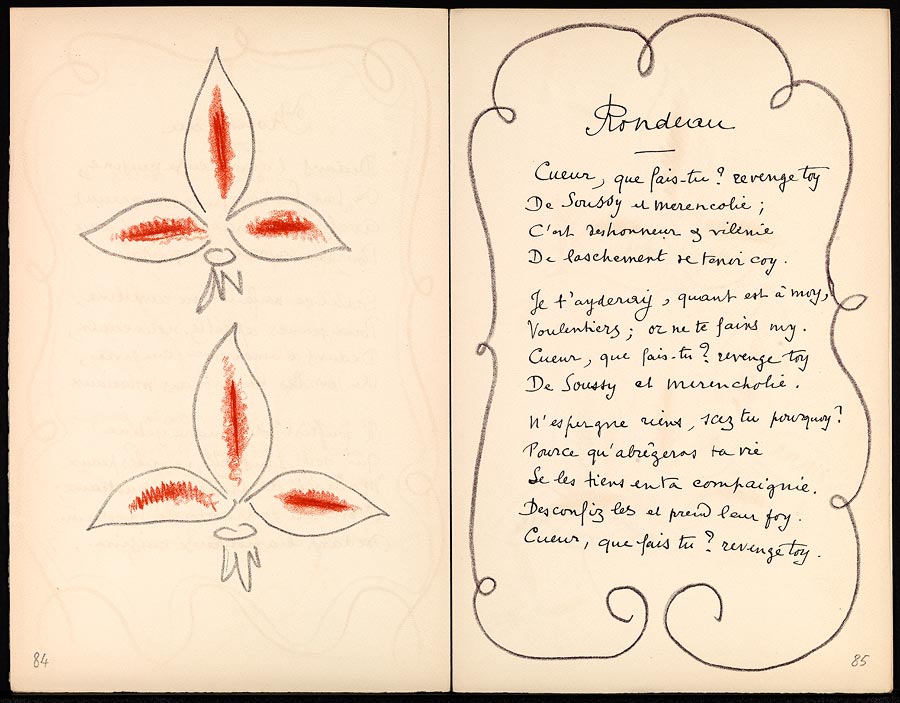 84
Rondeau
Cueur, que fais-tu? revenge toy
De Soussy et merencolie ;
C'est deshonneur & vilénie
De laschement se tenir coy .
Je t'ayderay , quant est à moy,
Voulentiers ; or ne te fains my .
Cueur, que fais-tu? revenge toy
De Soussy et merencholie .
N'espergne riens, scez tu pourquoy?
Pource qu'abrégeras ta vie
Se les tiens en ta compaignie.
Desconfiz les et prend leur foy .
Cueur, que fais tu? revenge toy .
85